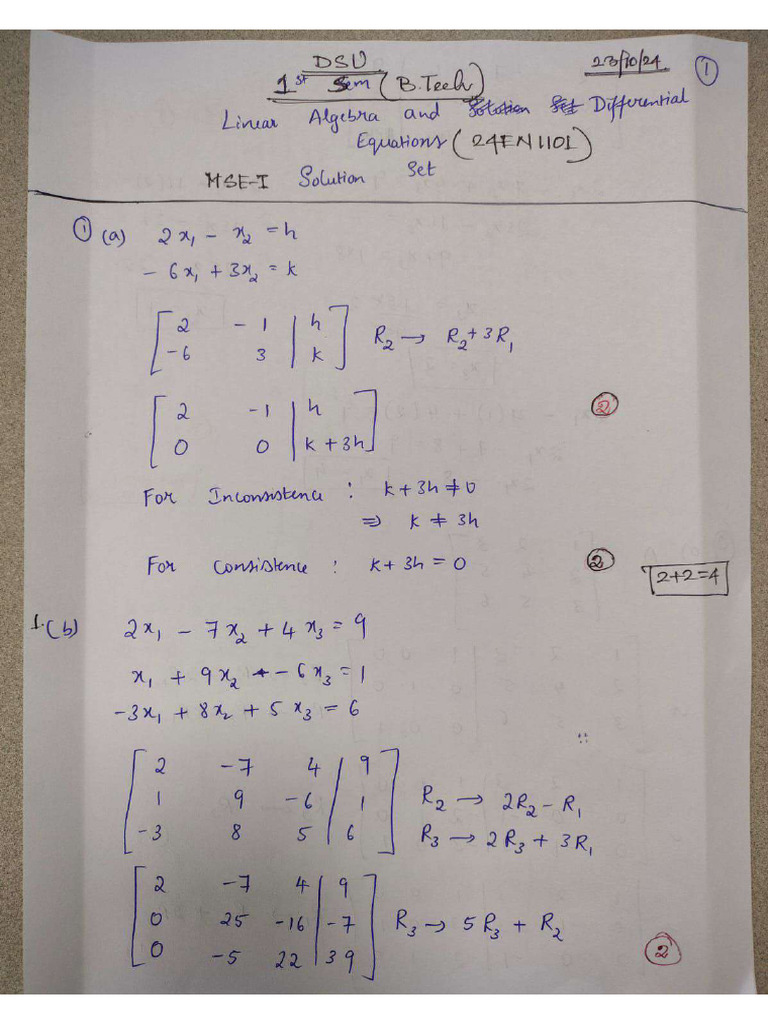 DSU
23/10/24
1
1st Sem (B.Tech)
Linear Algebra and Differential
Equations (24EN1101)
MSE-I Solution Set
① (a) 2x₁ - x₂ = h
- 6x₁ + 3x₂ = k
[ 2 -1 | h ]
[ -6 3 | k ] R₂ → R₂ + 3R₁
[ 2 -1 | h ]
[ 0 0 | k + 3h ]
②
For Inconsistence : k + 3h ≠ 0
⇒ k ≠ 3h
For consistence : k + 3h = 0
②
2+2=4
1.(b) 2x₁ - 7x₂ + 4x₃ = 9
x₁ + 9x₂ - 6x₃ = 1
-3x₁ + 8x₂ + 5x₃ = 6
[ 2 -7 4 | 9 ]
[ 1 9 -6 | 1 ] R₂ → 2R₂ - R₁
[ -3 8 5 | 6 ] R₃ → 2R₃ + 3R₁
[ 2 -7 4 | 9 ]
[ 0 25 -16 | -7 ] R₃ → 5R₃ + R₂
[ 0 -5 22 | 39 ]
②